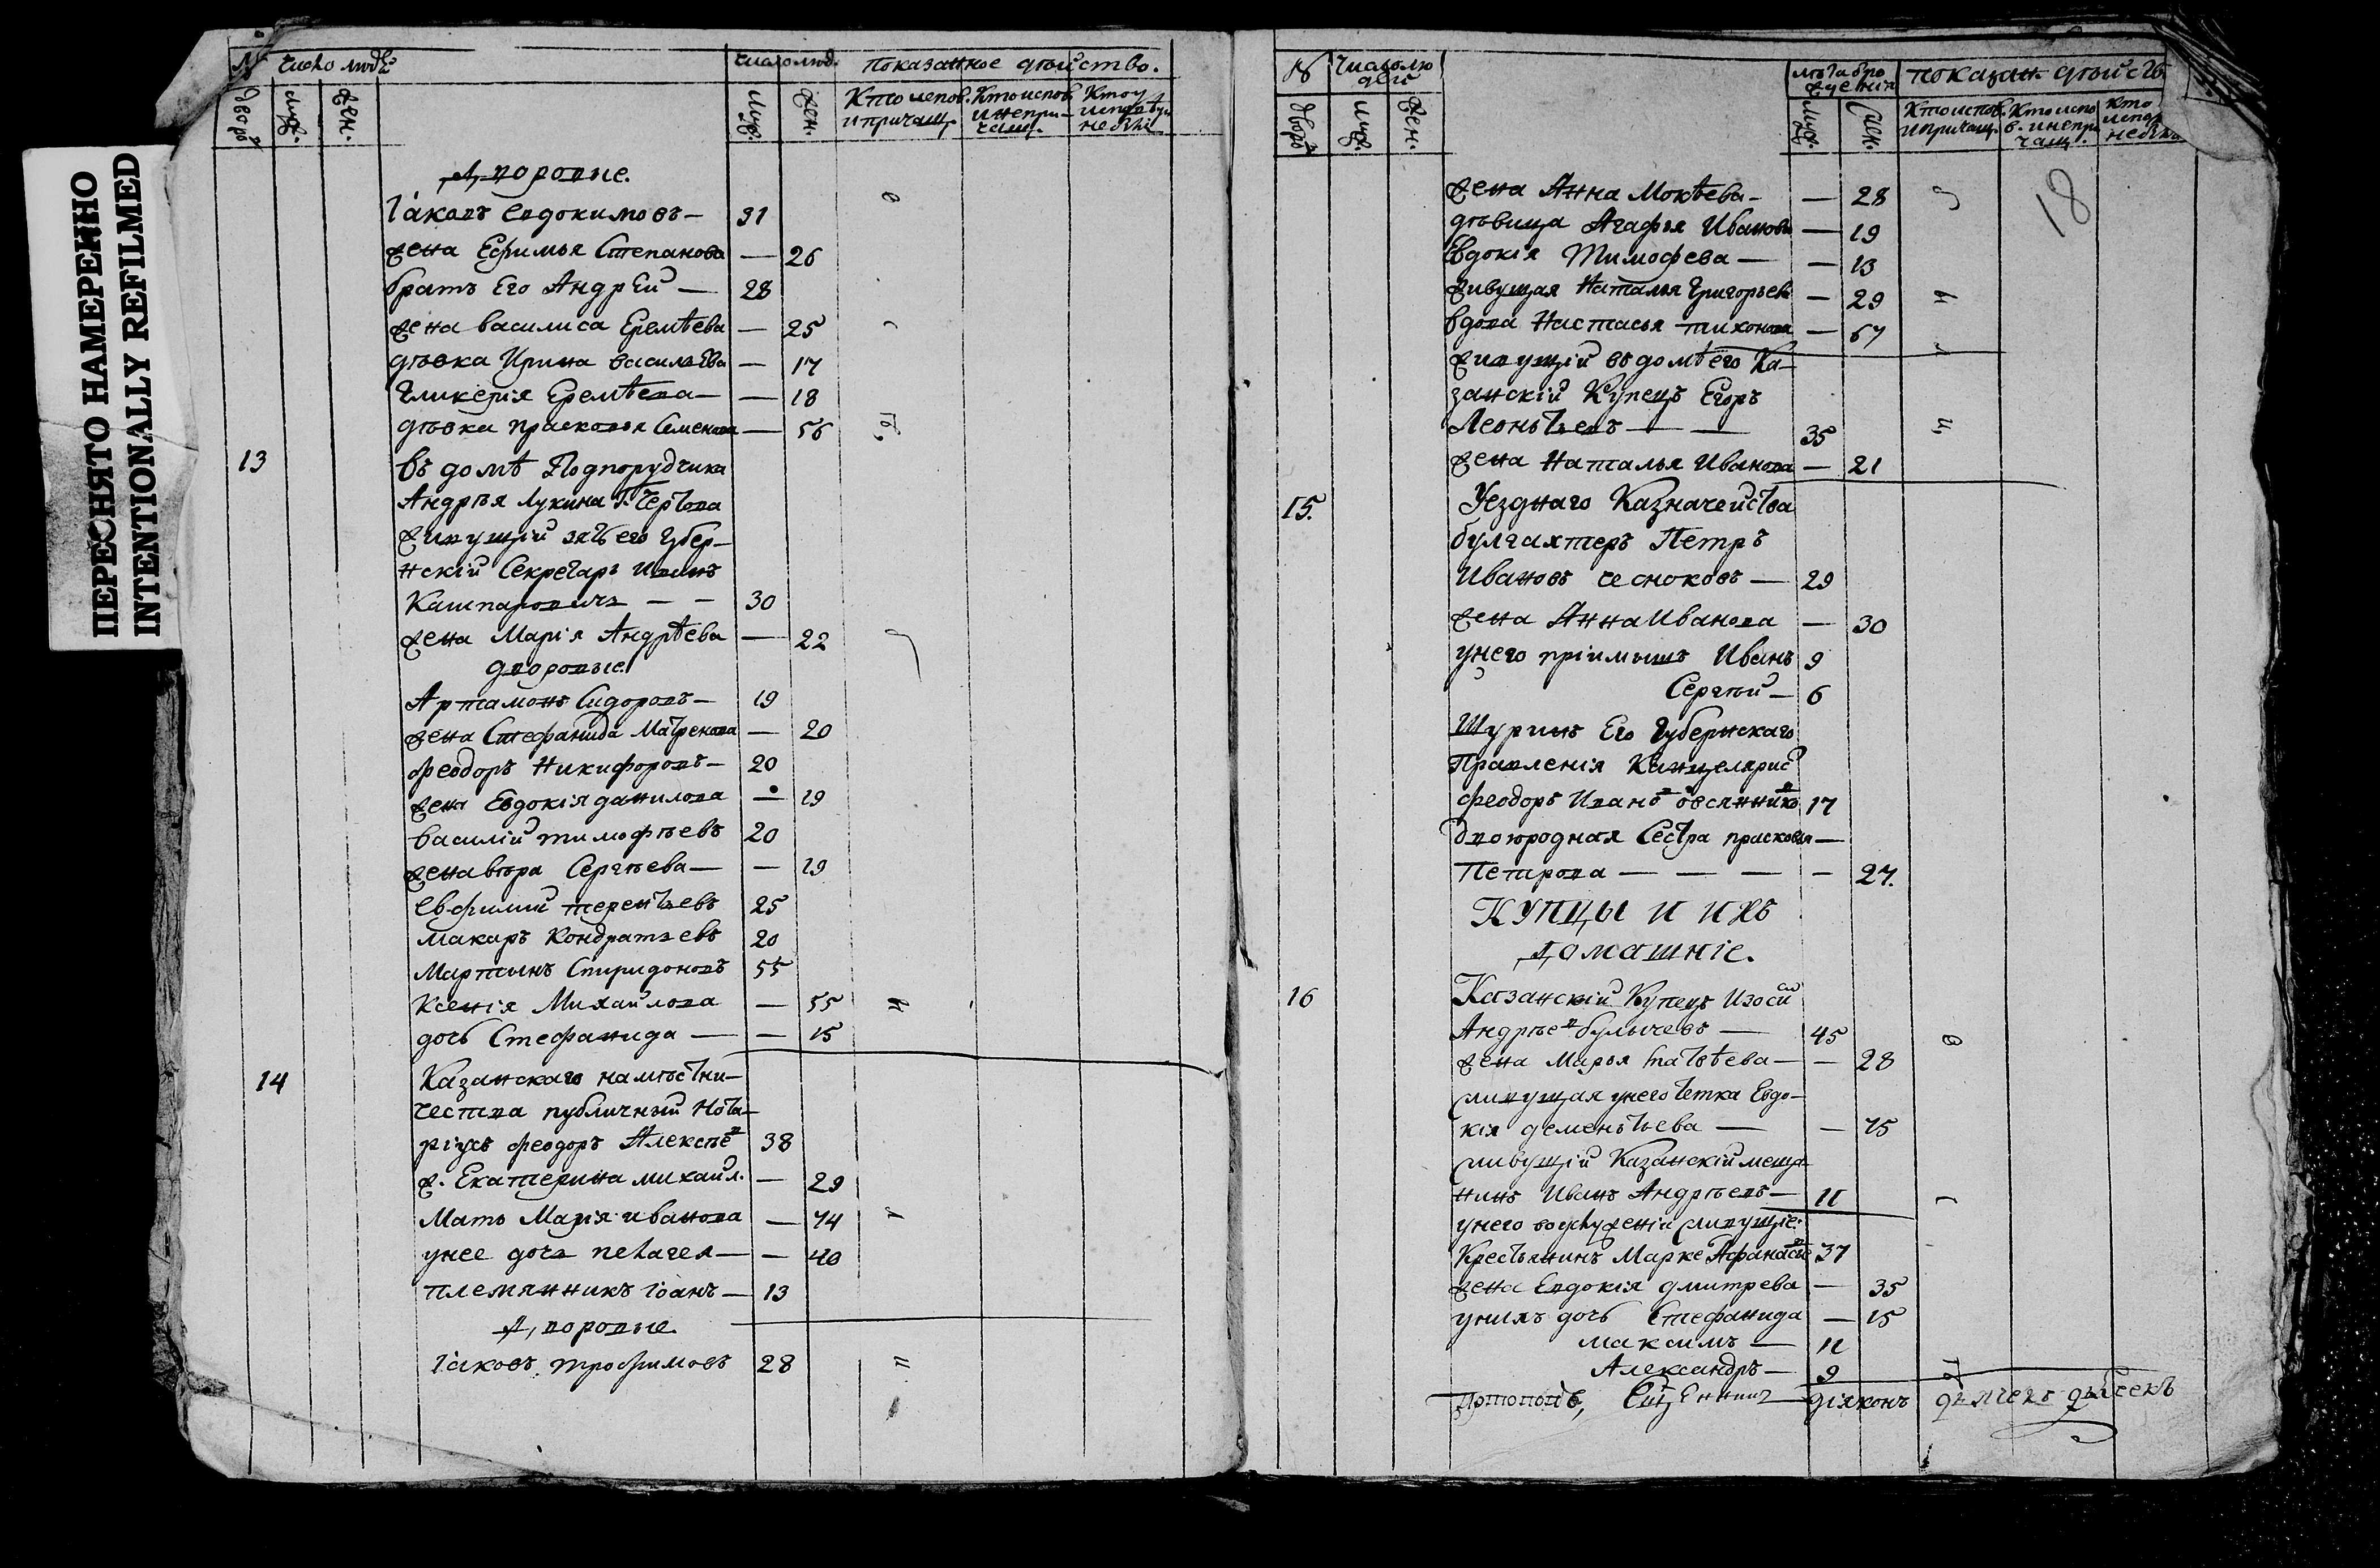 ПЕРЕСНЯТО НАМЕРЕННО
INTENTIONALLY REFILMED
№ Число людѣ
Число люд. показанное дѣйство.
дворъ муж. жен.
муж. жен. Кто испов. и причащ. Кто испов. и непричащ. Кто у исповѣди не были
Дворовые.
Іаковъ Евдокимовъ — 31
жена Ефимья Степанова — 26
братъ Его Андрей — 28
жена василиса Еремѣева — 25
дѣвка Ирина васильева — 17
Гликерія Еремѣева — 18
дѣвка прасковья Семенова — 56
13 въ домѣ Подпорудчика
Андрѣя Лукина Г. Чертова
живущій зять его Губер-
нскій Секретарь Иванъ
Кашпаровичь — 30
жена Марія Андрѣева — 22
дворовые
Артамонъ Сидоровъ — 19
жена Стефанида Матренова — 20
феодоръ Никифоровъ — 20
жена Евдокія данилова — 19
василій тимофѣевъ 20
жена вѣра Сергѣева — 19
евфимий терентьевъ 25
макаръ Кондратьевъ 20
Мартынъ Спиридоновъ 55
Ксенія Михайлова — 55
дочь Стефанида — 15
14 Казанскаго намѣстни-
чества публичный Нота-
ріусъ феодоръ Алексѣевъ 38
ж. Екатерина михайл. — 29
Мать Марія иванова — 74
унее дочь пелагея — 40
племянникъ іоанъ — 13
Дворовые.
Іаковъ трофимовъ 28
№ Число людей
лѣта рожденія показан. дѣйств
дворъ муж. жен.
муж. жен. Кто испов. и причащ. Кто испов. и непричащ. Кто
жена Анна Мокѣева — 28
18
дѣвица Агафья Иванова — 19
Евдокія Тимофева — 13
живущая Наталья Григорьева — 29
вдова Настасья тихонова — 67
живущій въ домѣ его Ка-
занскій Купецъ Егоръ
Леонтьевъ — 35
жена Наталья Иванова — 21
15. Уезднаго Казначейства
булгахтеръ Петръ
Ивановъ чесноковъ — 29
жена Анна Иванова — 30
унего пріимышъ Иванъ 9
Сергѣй — 6
Шуринъ Его Губернскаго
Правленія Канцелярис
феодоръ Иванов овсянников 17
двоюродная Сестра прасковья —
Петрова — 27.
КУПЦЫ И ИХЪ
Домашніе.
16 Казанскій Купецъ Изоси
Андрѣев булычевъ — 45
жена Марья матвѣева — 28
живущая унего тетка Евдо-
кія дементьева — 75
живущій Казанскій меща-
нинъ Иванъ Андрѣевъ — 11
унего живущіе:
Крестьянинъ Марке Афанасьев 37
жена Евдокія дмитрева — 35
унихъ дочь Стефанида — 15
максимъ — 11
Александръ — 9
протопопъ, Сщенникъ діяконъ дьячекъ дьячекъ